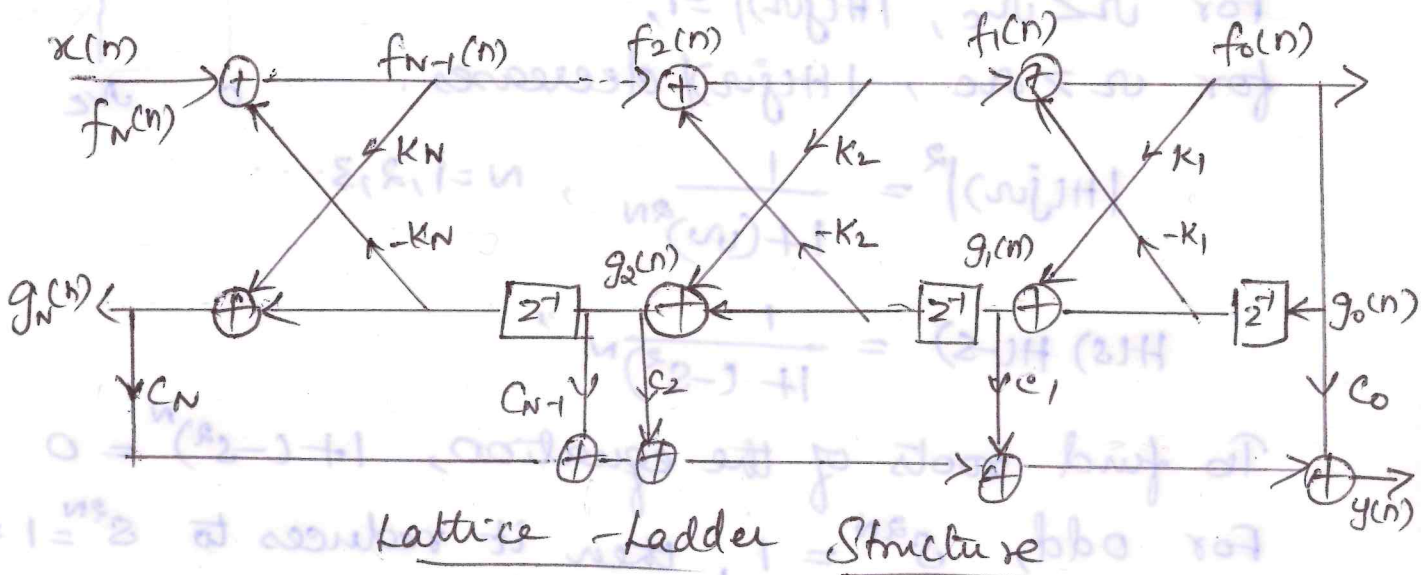 x(n) f_N-1(n) f_2(n) f_1(n) f_0(n)
+ + +
f_N(n)
K_N K_2 K_1
-K_N -K_2 -K_1
g_N(n) g_2(n) g_1(n) g_0(n)
+ z⁻¹ + z⁻¹ + z⁻¹
C_N C_N-1 C_2 C_1 C_0
+ + + +
y(n)
Lattice - Ladder Structure